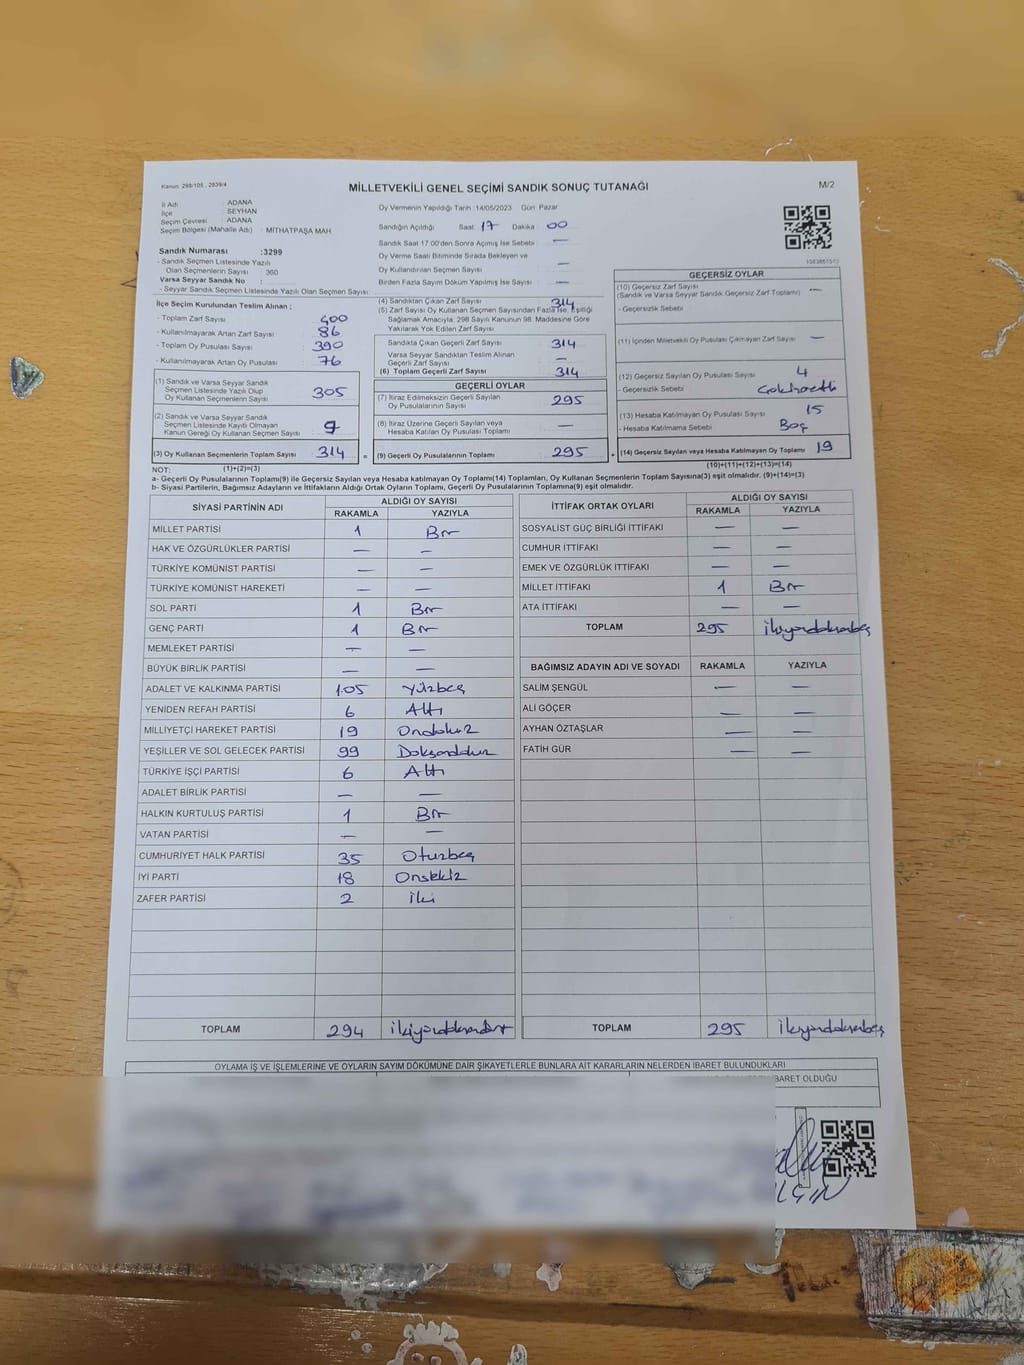 Kanun: 298/105 , 2839/4
MİLLETVEKİLİ GENEL SEÇİMİ SANDIK SONUÇ TUTANAĞI
M/2
İl Adı : ADANA
İlçe : SEYHAN
Seçim Çevresi : ADANA
Seçim Bölgesi (Mahalle Adı) : MİTHATPAŞA MAH
Sandık Numarası :3299
- Sandık Seçmen Listesinde Yazılı
Olan Seçmenlerin Sayısı : 360
Varsa Seyyar Sandık No :
- Seyyar Sandık Seçmen Listesinde Yazılı Olan Seçmen Sayısı :
Oy Vermenin Yapıldığı Tarih :14/05/2023 Gün: Pazar
Sandığın Açıldığı Saat 17 Dakika 00
Sandık Saat 17:00'den Sonra Açılmış İse Sebebi : —
Oy Verme Saati Bitiminde Sırada Bekleyen ve
Oy Kullandırılan Seçmen Sayısı : —
Birden Fazla Sayım Döküm Yapılmış İse Sayısı : —
İlçe Seçim Kurulundan Teslim Alınan ;
- Toplam Zarf Sayısı : 400
- Kullanılmayarak Artan Zarf Sayısı : 86
- Toplam Oy Pusulası Sayısı : 390
- Kullanılmayarak Artan Oy Pusulası : 76
(1) Sandık ve Varsa Seyyar Sandık
Seçmen Listesinde Yazılı Olup
Oy Kullanan Seçmenlerin Sayısı : 305
(2) Sandık ve Varsa Seyyar Sandık
Seçmen Listesinde Kayıtlı Olmayan
Kanun Gereği Oy Kullanan Seçmen Sayısı : 9
(3) Oy Kullanan Seçmenlerin Toplam Sayısı : 314 =
(1)+(2)=(3)
(4) Sandıktan Çıkan Zarf Sayısı : 314
(5) Zarf Sayısı Oy Kullanan Seçmen Sayısından Fazla İse, Eşitliği
Sağlamak Amacıyla, 298 Sayılı Kanunun 98. Maddesine Göre
Yakılarak Yok Edilen Zarf Sayısı :
Sandıkta Çıkan Geçerli Zarf Sayısı : 314
Varsa Seyyar Sandıktan Teslim Alınan
Geçerli Zarf Sayısı : —
(6) Toplam Geçerli Zarf Sayısı : 314
GEÇERLİ OYLAR
(7) İtiraz Edilmeksizin Geçerli Sayılan
Oy Pusulalarının Sayısı : 295
(8) İtiraz Üzerine Geçerli Sayılan veya
Hesaba Katılan Oy Pusulası Toplamı : —
(9) Geçerli Oy Pusulalarının Toplamı : 295 +
GEÇERSİZ OYLAR
(10) Geçersiz Zarf Sayısı
(Sandık ve Varsa Seyyar Sandık Geçersiz Zarf Toplamı) : —
- Geçersizlik Sebebi :
(11) İçinden Milletvekili Oy Pusulası Çıkmayan Zarf Sayısı : —
(12) Geçersiz Sayılan Oy Pusulası Sayısı : 4
- Geçersizlik Sebebi :
(13) Hesaba Katılmayan Oy Pusulası Sayısı : 15
- Hesaba Katılmama Sebebi : Boş
(14) Geçersiz Sayılan veya Hesaba Katılmayan Oy Toplamı : 19
(10)+(11)+(12)+(13)=(14)
NOT:
a- Geçerli Oy Pusulalarının Toplamı(9) ile Geçersiz Sayılan veya Hesaba katılmayan Oy Toplamı(14) Toplamları, Oy Kullanan Seçmenlerin Toplam Sayısına(3) eşit olmalıdır. (9)+(14)=(3)
b- Siyasi Partilerin, Bağımsız Adayların ve İttifakların Aldığı Ortak Oyların Toplamı, Geçerli Oy Pusulalarının Toplamına(9) eşit olmalıdır.
SİYASİ PARTİNİN ADI ALDIĞI OY SAYISI
RAKAMLA YAZIYLA
MİLLET PARTİSİ 1 Bir
HAK VE ÖZGÜRLÜKLER PARTİSİ — —
TÜRKİYE KOMÜNİST PARTİSİ — —
TÜRKİYE KOMÜNİST HAREKETİ — —
SOL PARTİ 1 Bir
GENÇ PARTİ 1 Bir
MEMLEKET PARTİSİ — —
BÜYÜK BİRLİK PARTİSİ — —
ADALET VE KALKINMA PARTİSİ 105 Yüzbeş
YENİDEN REFAH PARTİSİ 6 Altı
MİLLİYETÇİ HAREKET PARTİSİ 19 Ondokuz
YEŞİLLER VE SOL GELECEK PARTİSİ 99 Doksandokuz
TÜRKİYE İŞÇİ PARTİSİ 6 Altı
ADALET BİRLİK PARTİSİ — —
HALKIN KURTULUŞ PARTİSİ 1 Bir
VATAN PARTİSİ — —
CUMHURİYET HALK PARTİSİ 35 Otuzbeş
İYİ PARTİ 18 Onsekiz
ZAFER PARTİSİ 2 İki
TOPLAM 294 ikiyüzdoksandört
İTTİFAK ORTAK OYLARI ALDIĞI OY SAYISI
RAKAMLA YAZIYLA
SOSYALİST GÜÇ BİRLİĞİ İTTİFAKI — —
CUMHUR İTTİFAKI — —
EMEK VE ÖZGÜRLÜK İTTİFAKI — —
MİLLET İTTİFAKI 1 Bir
ATA İTTİFAKI — —
TOPLAM 295 ikiyüzdoksanbeş
BAĞIMSIZ ADAYIN ADI VE SOYADI RAKAMLA YAZIYLA
SALİM ŞENGÜL — —
ALİ GÖÇER — —
AYHAN ÖZTAŞLAR — —
FATİH GÜR — —
TOPLAM 295 ikiyüzdoksanbeş
OYLAMA İŞ VE İŞLEMLERİNE VE OYLARIN SAYIM DÖKÜMÜNE DAİR ŞİKAYETLERLE BUNLARA AİT KARARLARIN NELERDEN İBARET BULUNDUKLARI
BARET OLDUĞU